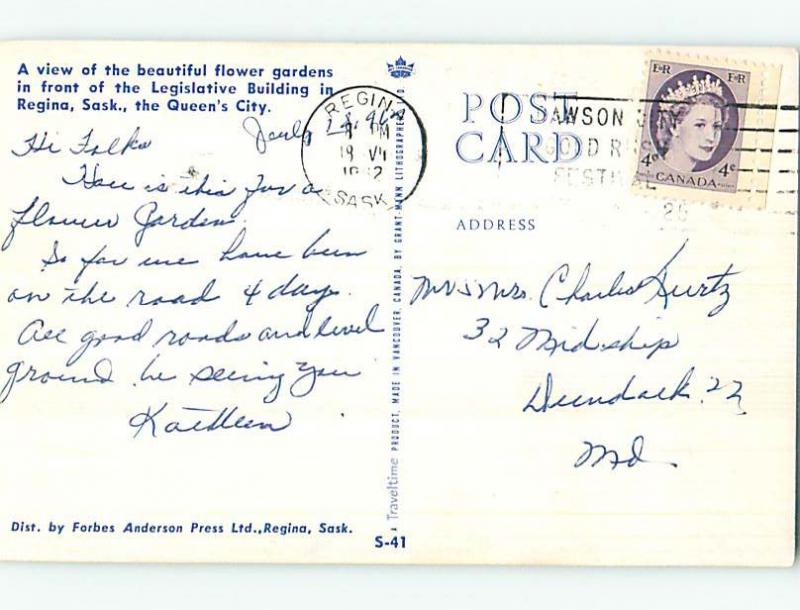 A view of the beautiful flower gardens
in front of the Legislative Building in
Regina, Sask., the Queen's City.
July 18, 962
Hi Folks
How is this for a
flower Garden.
So far we have been
on the road 4 days.
All good roads and level
ground. be seeing you
Kathleen
Dist. by Forbes Anderson Press Ltd.,Regina, Sask.
S-41
A Traveltime PRODUCT, MADE IN VANCOUVER, CANADA, BY GRANT-MANN LITHOGRAPHERS LTD.
REGINA
PM
18 VII
1962
SASK
POST
CARD
AWSON CITY
GOLD RUSH
FESTIVAL
26
E II R E II R
4c 4c
CANADA
ADDRESS
Mr & Mrs. Charles Kurtz
32 Midship
Dundalk 22
Md